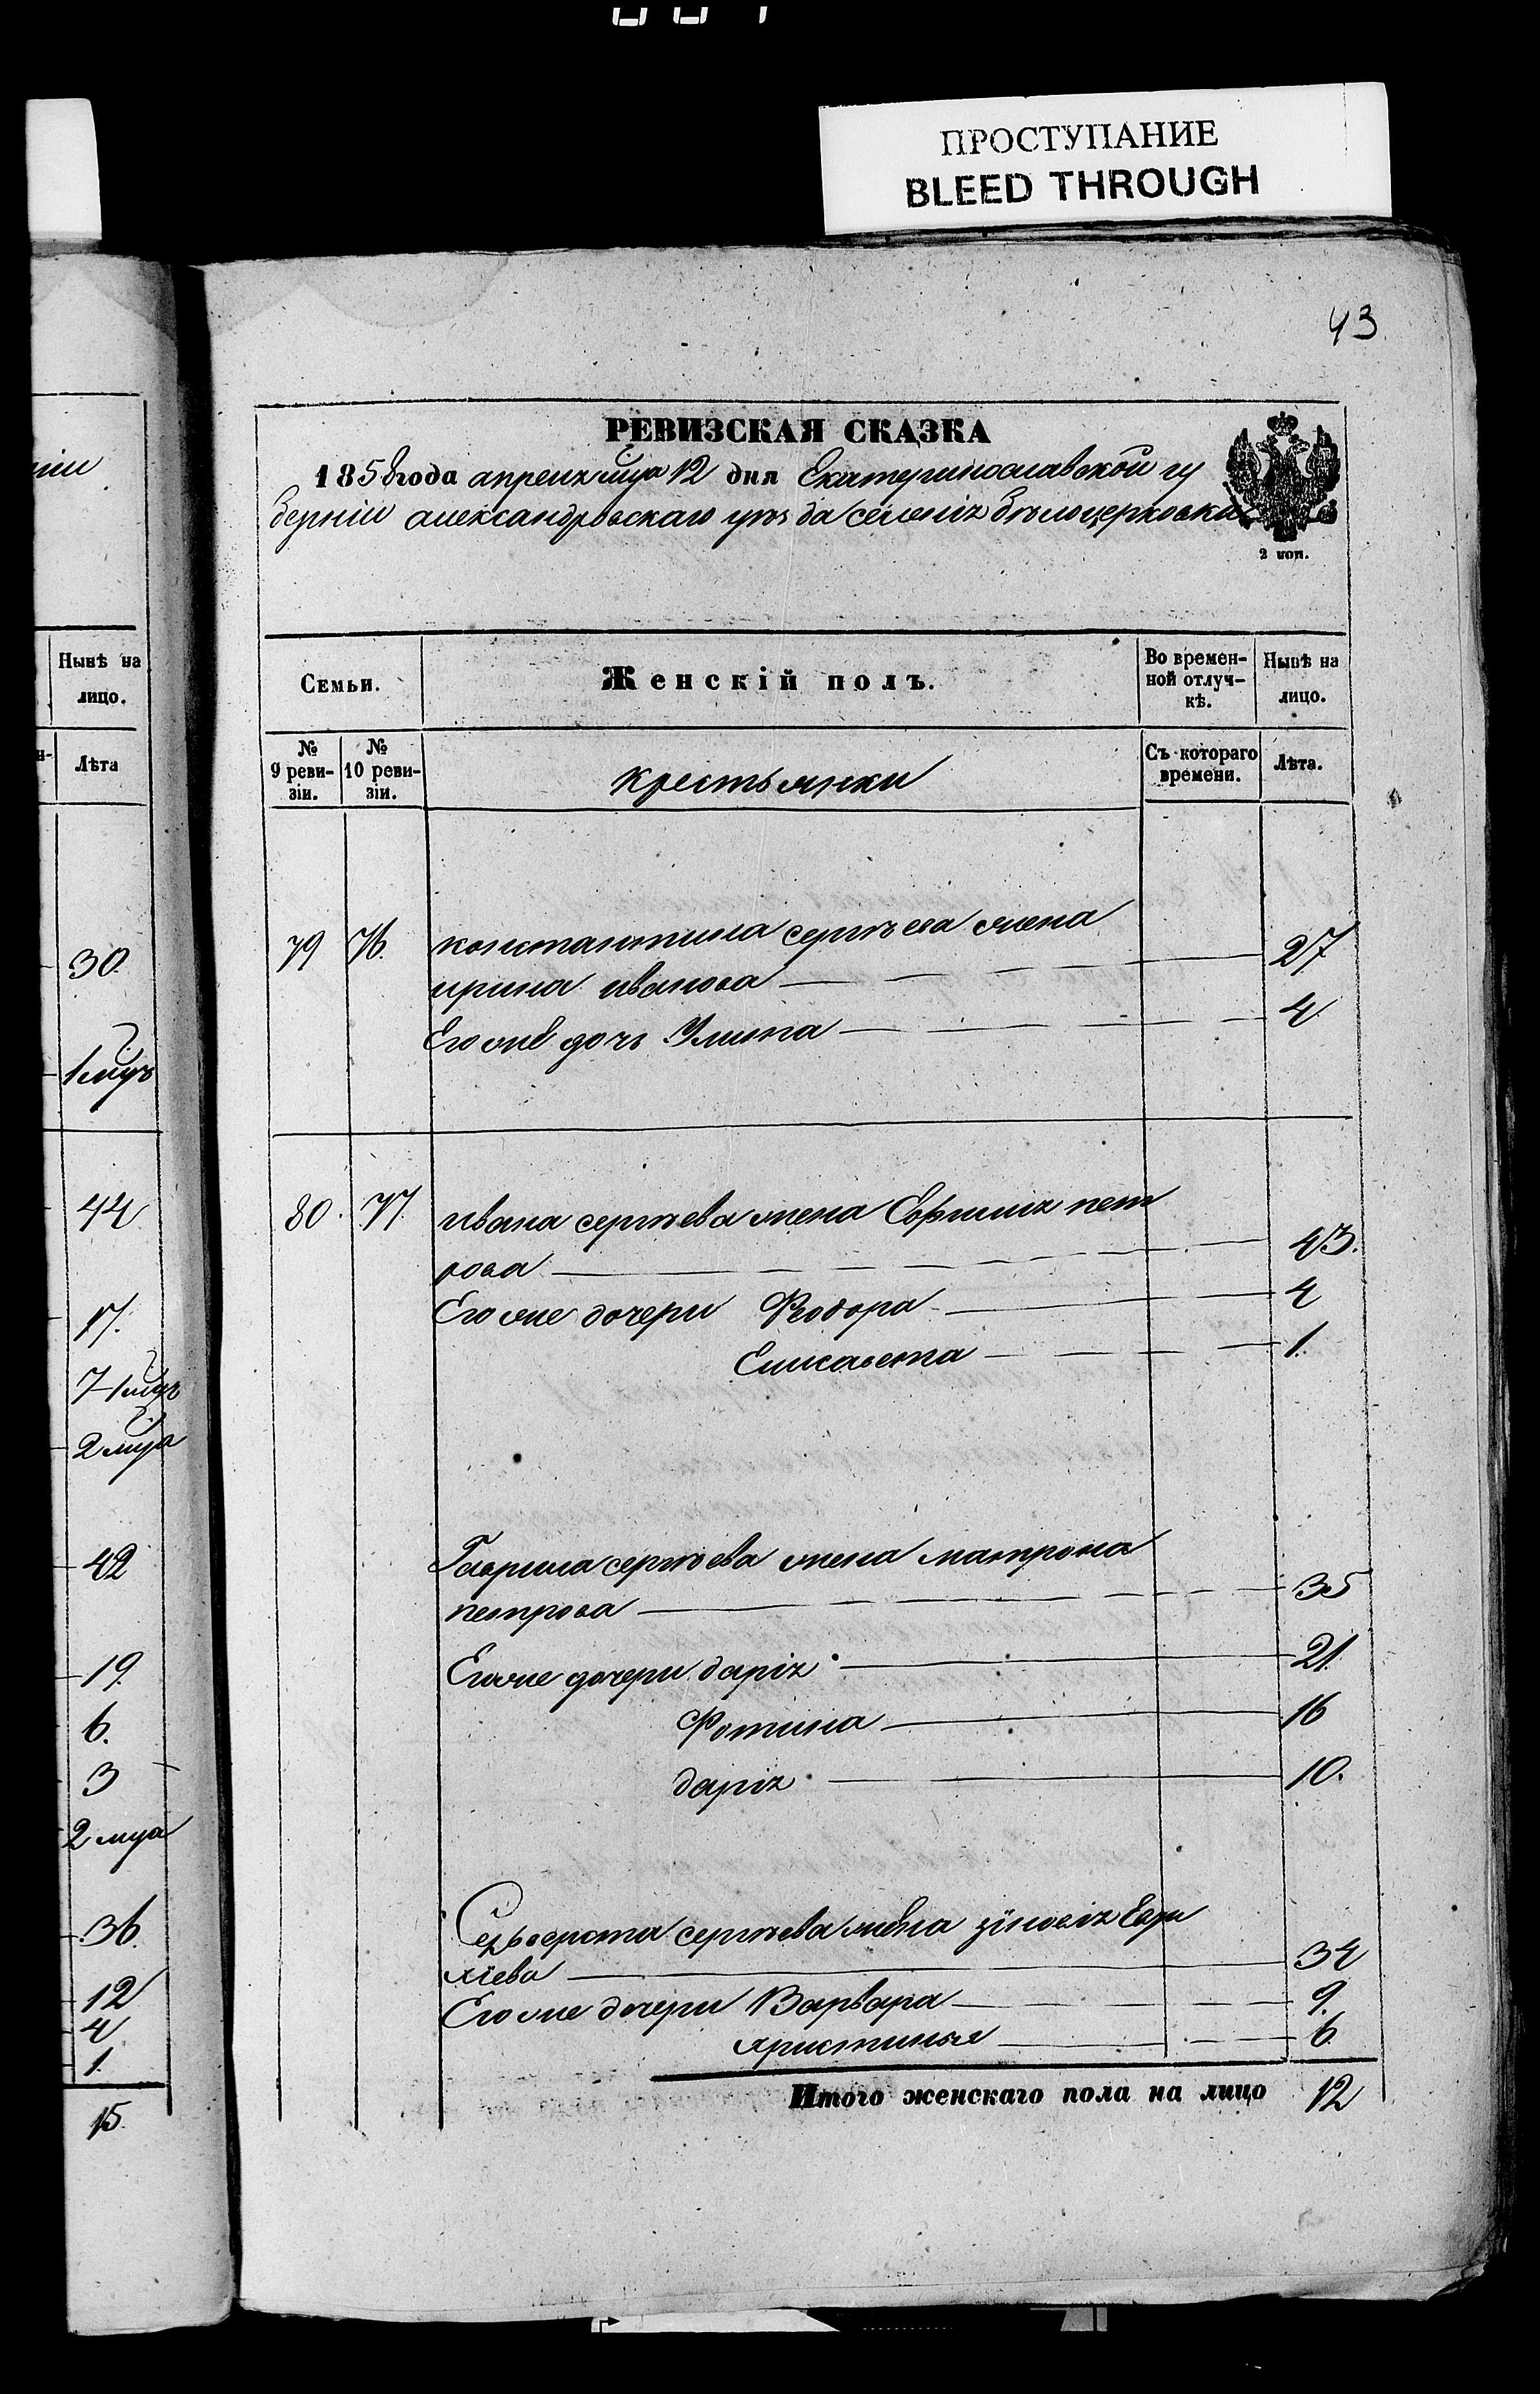 ПРОСТУПАНИЕ
BLEED THROUGH
43
РЕВИЗСКАЯ СКАЗКА
1858 года апреля мца 12 дня Екатеринославской гу
берніи александровскаго уѣзда селенія бѣлоцерковка
2 коп.
Семьи. Женскій полъ. Во времен- Нынѣ на
ной отлуч- лицо.
кѣ.
№ № крестьянки Съ котораго Лѣта.
9 реви- 10 реви- времени.
зіи. зіи.
79 76. константина сергѣева жена
ирина иванова 27
Его же дочь Улита 4
80. 77. ивана сергѣева жена Евфимія пет
рова 43.
Его же дочери Феодора 4
Елисавета 1.
Гаврила сергѣева жена матрона
петрова 35
Его же дочери дарія 21.
Фотина 16
дарія 10.
сергѣева жена зіновія
хіева 34
Его же дочери Варвара 9.
христинья 6
Итого женскаго пола на лицо 12
ніи
Нынѣ на
лицо.
Лѣта
30.
1 мцъ
44
17.
7 1 мцъ
2 мца
42
19.
6.
3
2 мца
36.
12
4
1.
15.